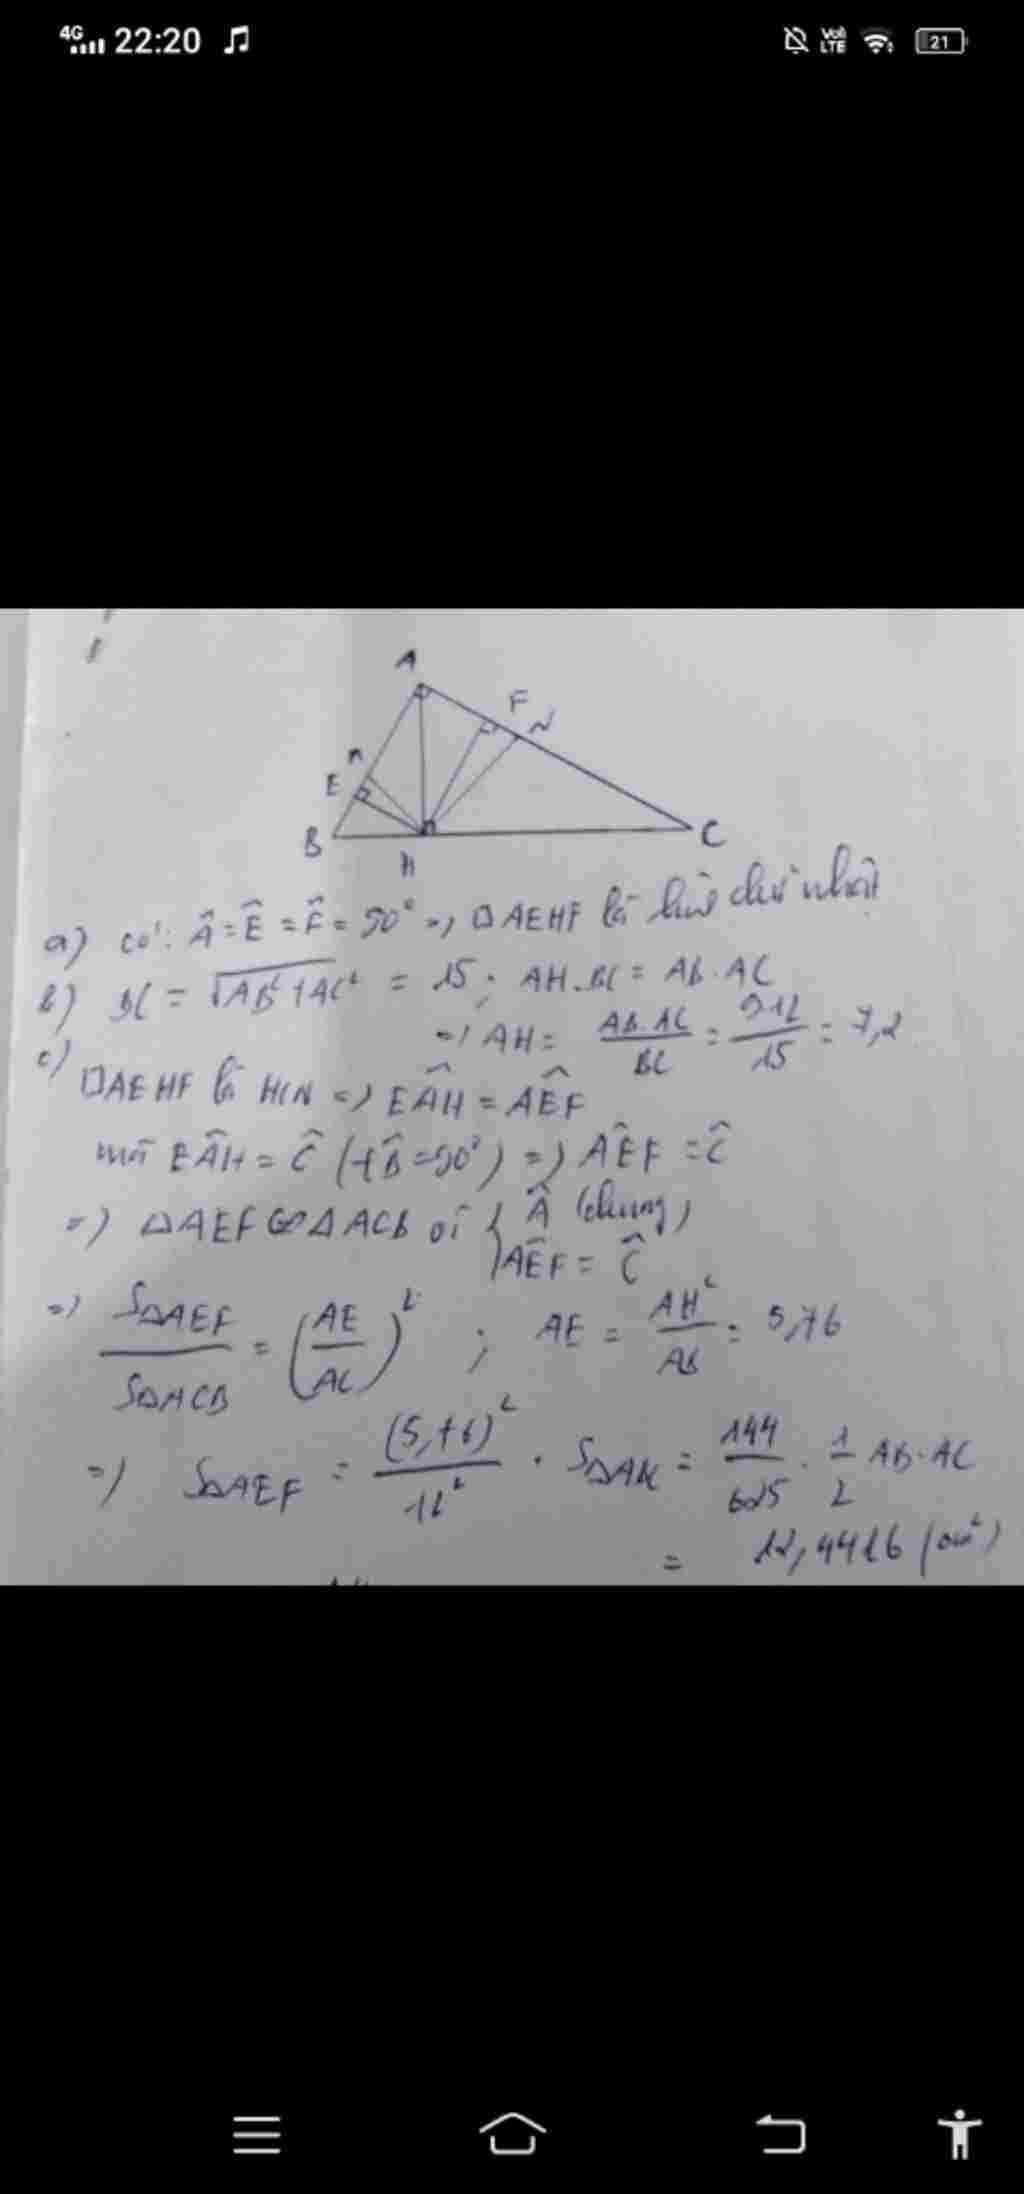 4G 22:20 VoI LTE 21
A
F N
M
E
B C
H
a) có: Â = Ê = F̂ = 90° => □AEHF là hình chữ nhật
b) BC = √AB² + AC² = 15; AH.BC = AB.AC
=> AH = AB.AC / BC = 9.12 / 15 = 7,2
c)
□AEHF là HCN => EÂH = AÊF
mà EÂH = Ĉ (+B̂ = 90°) => AÊF = Ĉ
=> △AEF ∽ △ACB vì { Â (chung)
AÊF = Ĉ
=> S△AEF / S△ACB = (AE / AC)² ; AE = AH² / AB = 5,76
=> S△AEF = (5,76)² / 12² . S△ABC = 144 / 625 . 1 / 2 AB.AC
= 12,4416 (cm²)